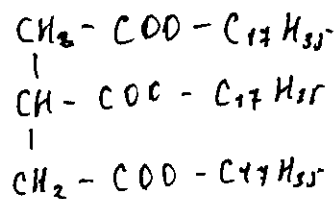 CH₂ - COO - C₁₇H₃₅
|
CH - COC - C₁₇H₃₅
|
CH₂ - COO - C₁₇H₃₅